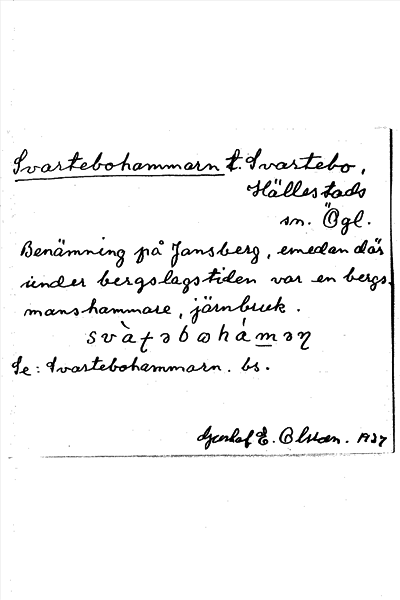 Svartebohammarn t. Svartebo,
Hällestads
sn. Ögl.
Benämning på Jansberg, emedan där
under bergslagstiden var en bergs-
manshammare, järnbruk.
svàƭəbωháməɳ
Se: Svartebohammarn. bs.
E. Olsson. 1937